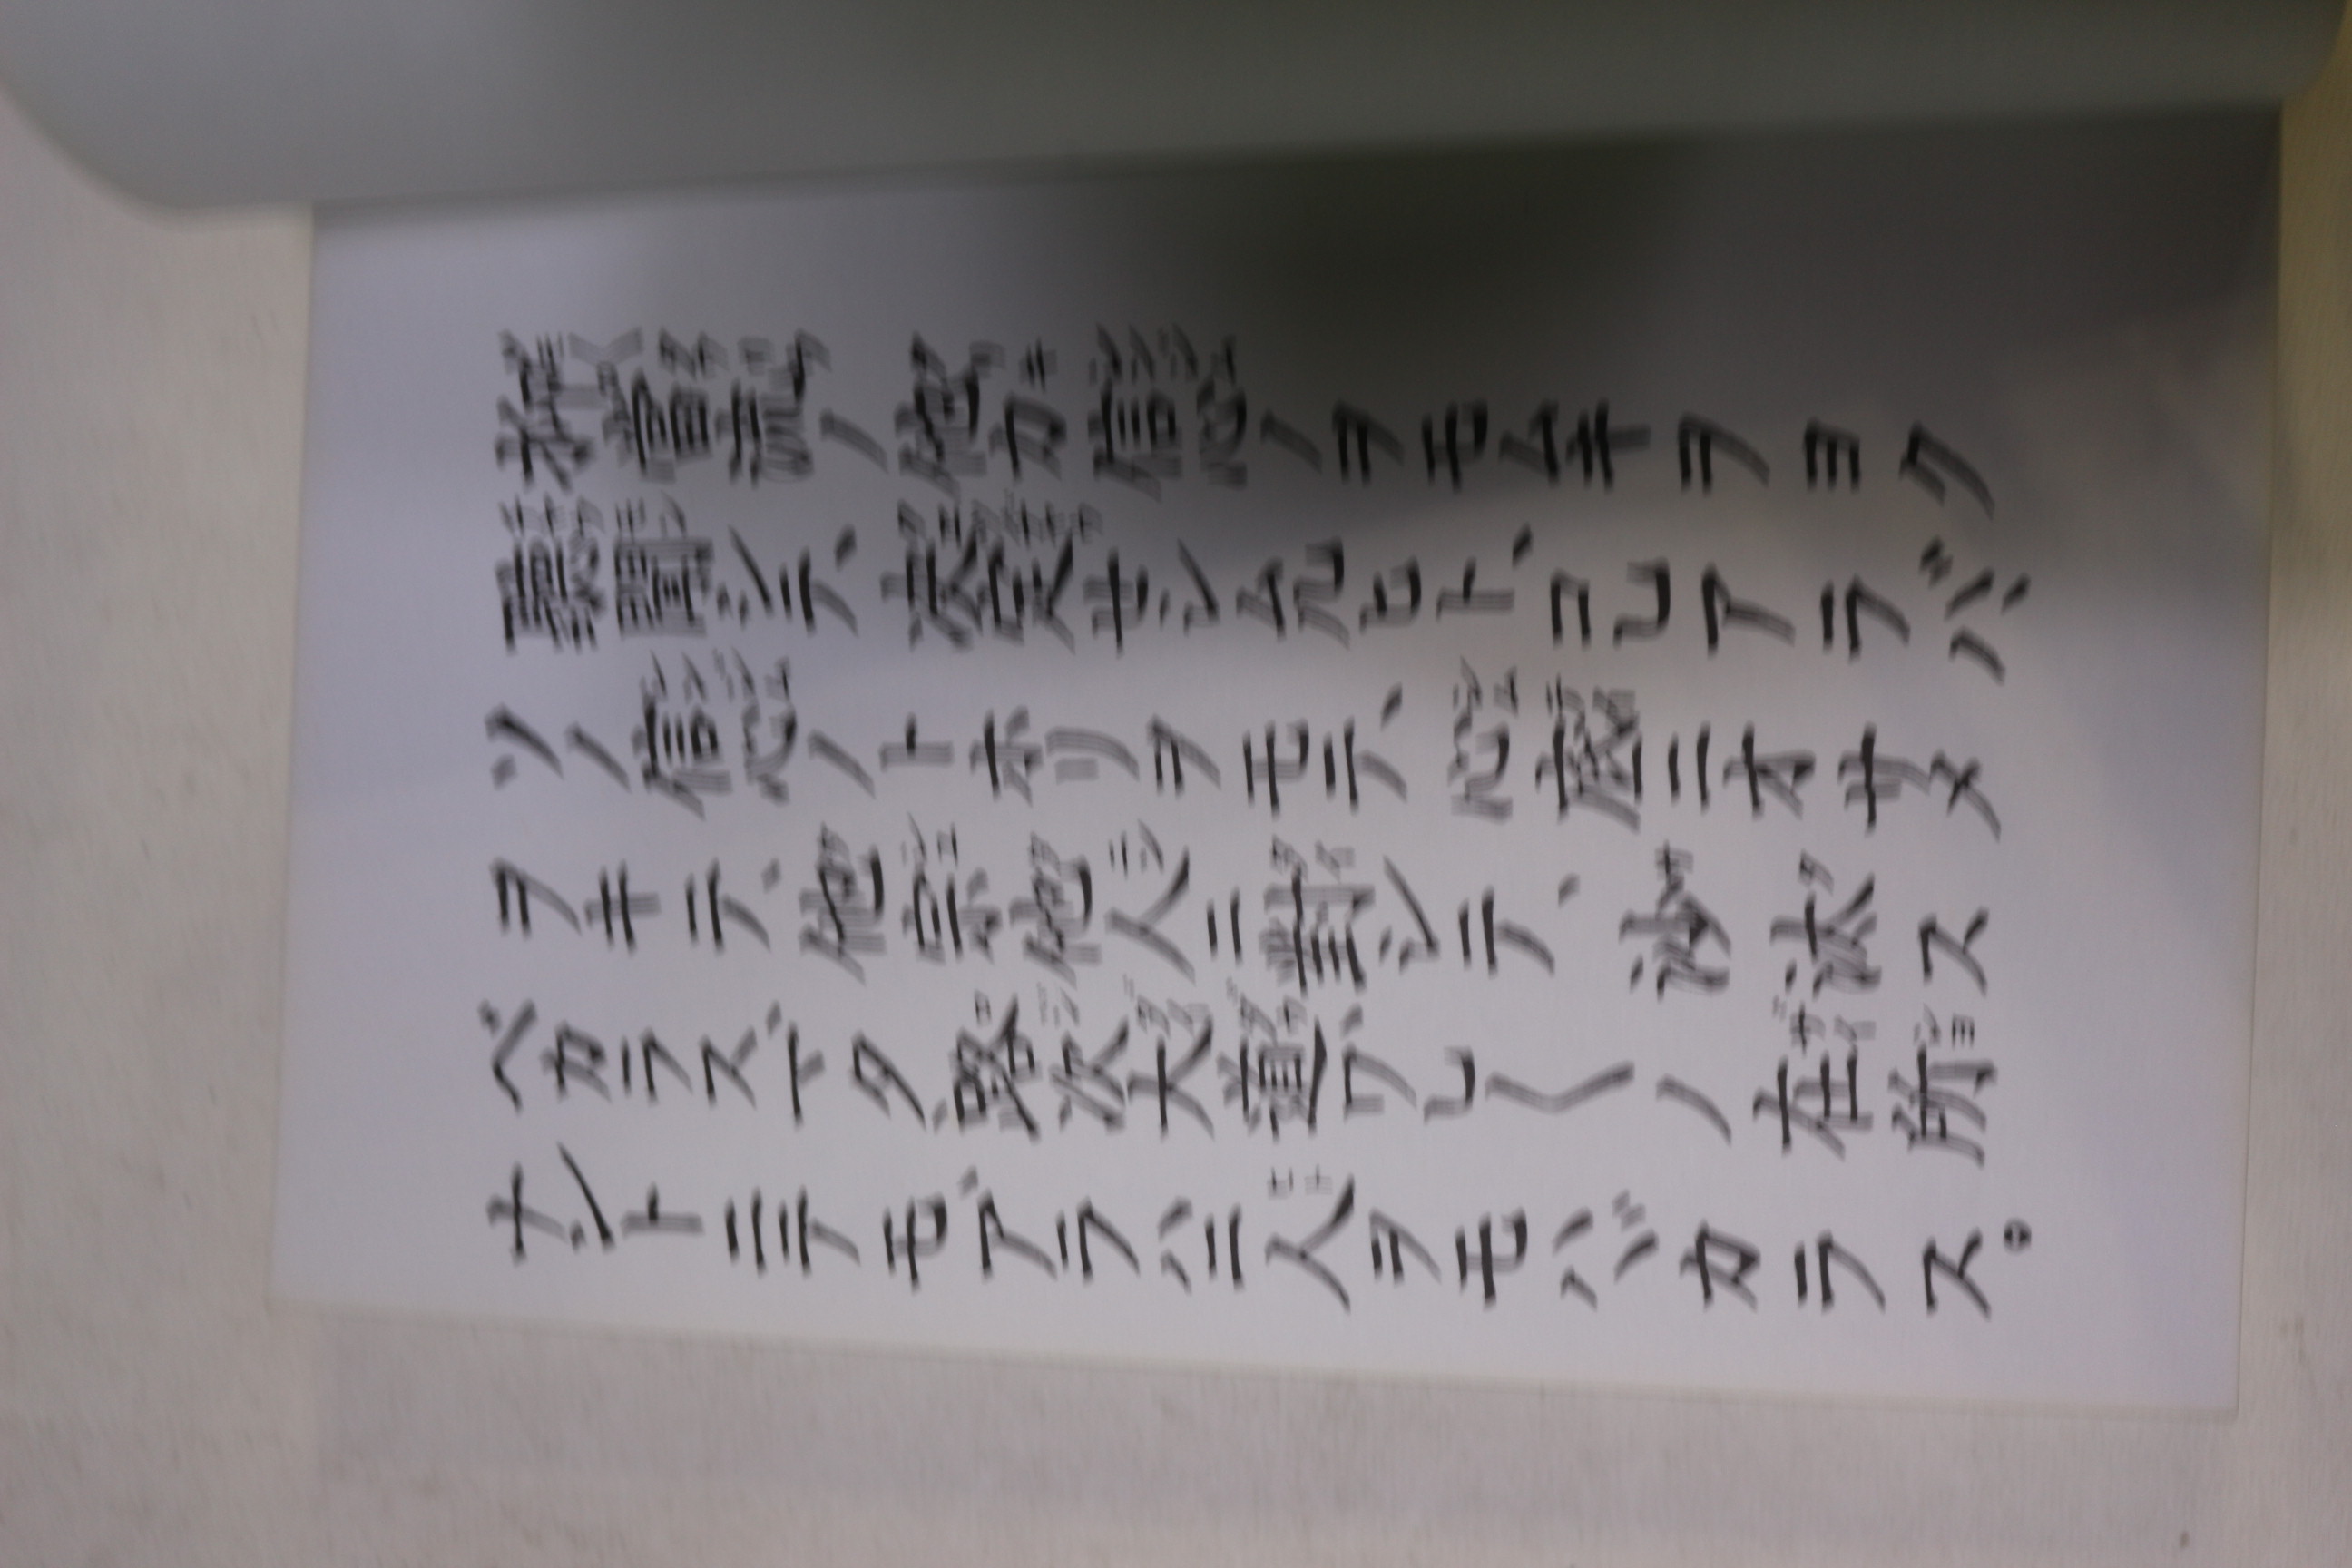 抑當流ノ他力信心ノヲモムキヲヨク
聽聞シテ、决定セシムルヒト、コレアラバ、
ソノ信心ノトホリヲモテ、心底ニオサメ
ヲキテ、他宗他人ニ對シテ、沙汰ス
ベカラス、マタ、路次大道、ワレ〱ノ在所
ナントニテモ、アラハニ人ヲモハヾカラス。